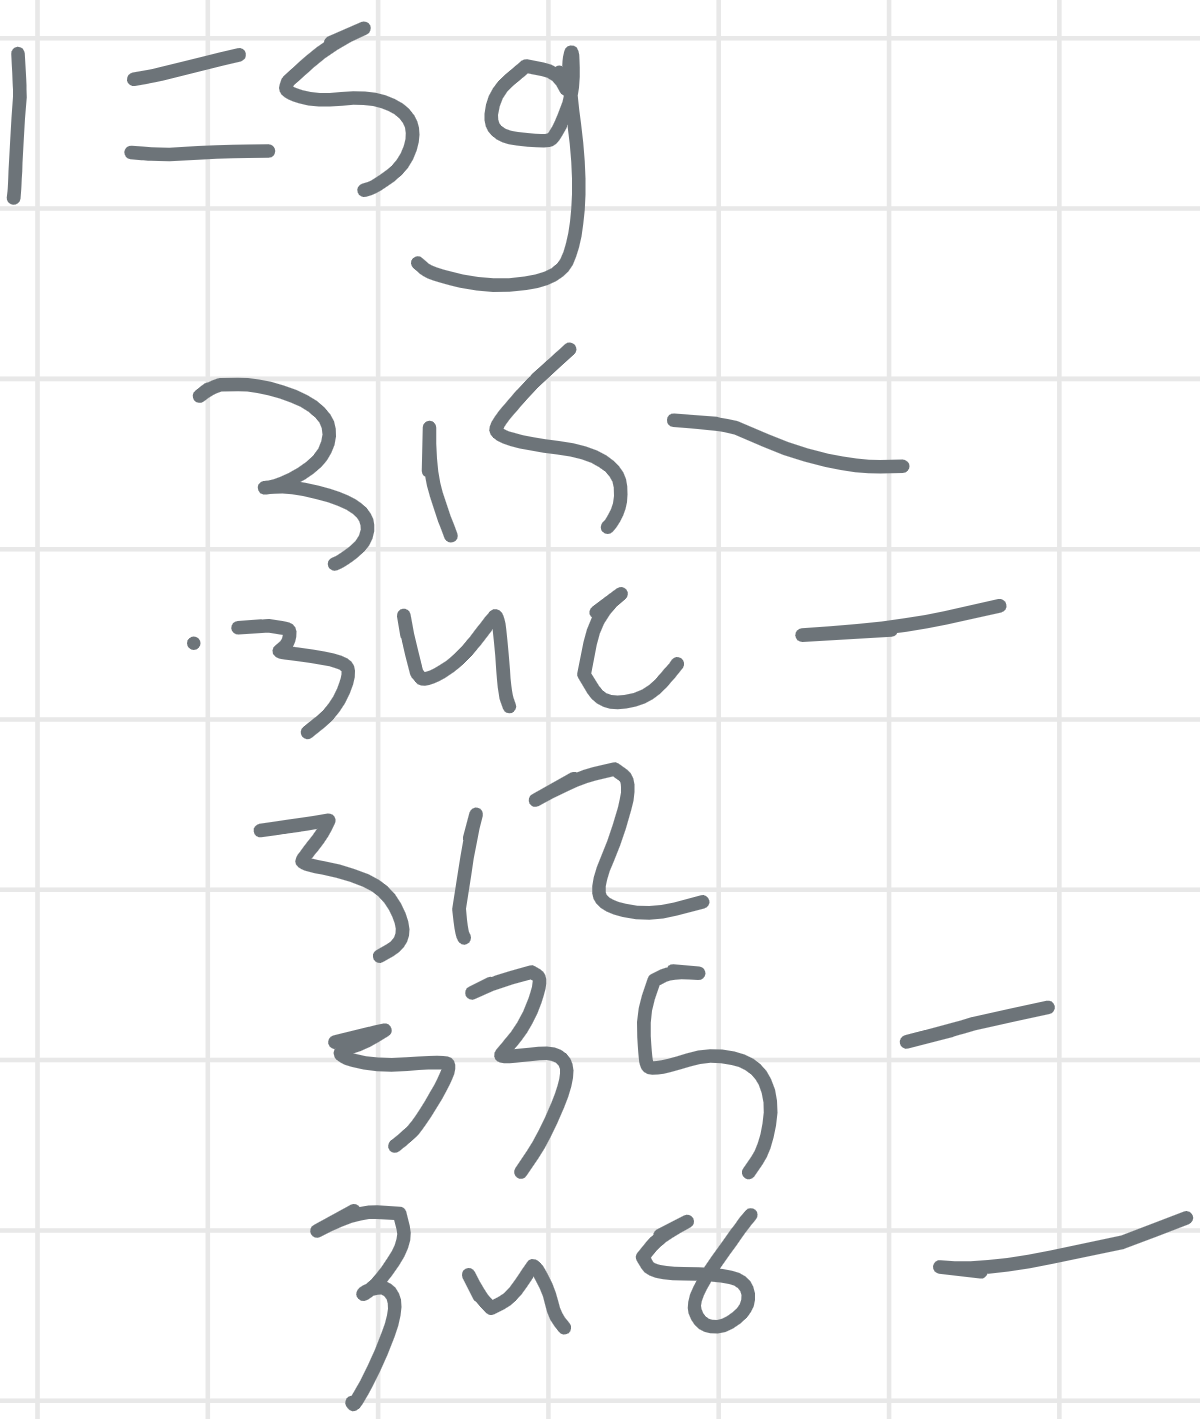 1 = 5 g
315 -
340 -
312
335 -
348 -